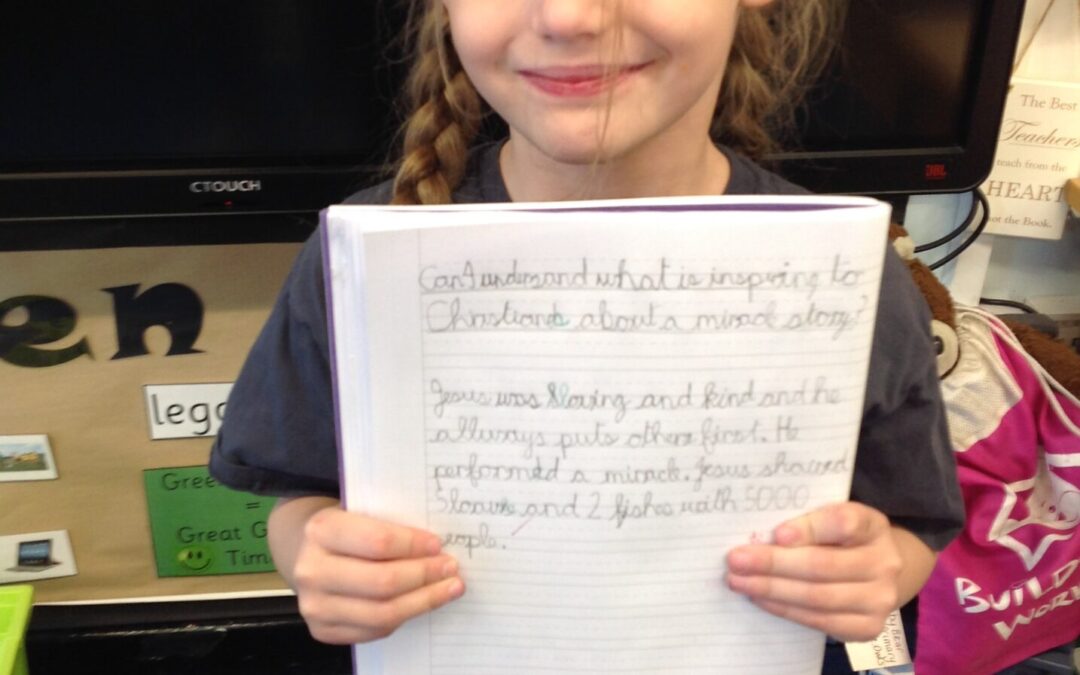 CTOUCH
JBL
The Best
Teachers
teach from the
HEART
not the Book.
en
lego
Gree
=
Great G
Time
Can I undersand what is inspiring to
Christians about a miracl story?
Jesus was loving and kind and he
allways puts others first. He
performed a miracle. Jesus shared
5 loaves and 2 fishes with 5000
people.
BUILD
WOR